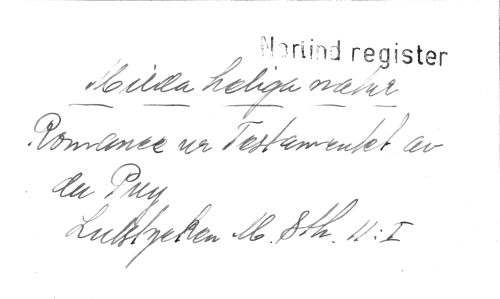 Norlind register
Milda heliga natur
Romance ur Testamentet av
du Puy
Lutstycken M. Sth. II:I